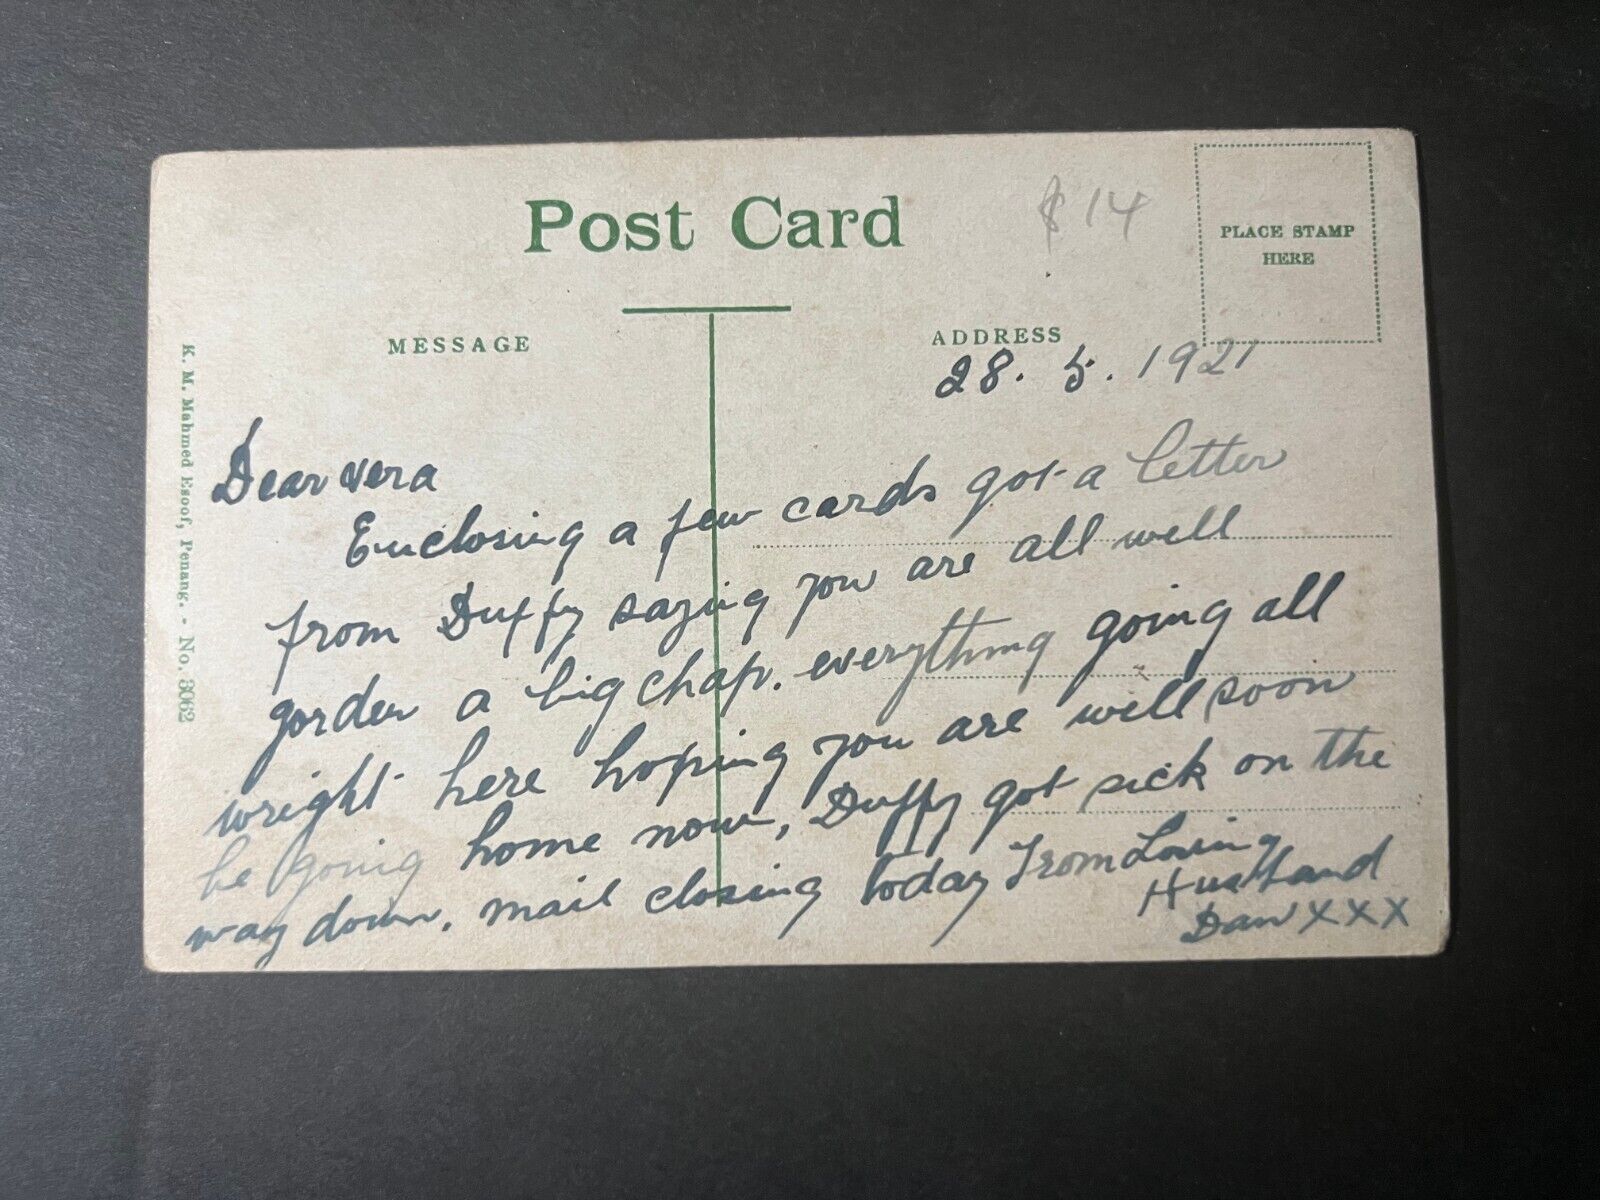 Post Card
$14
PLACE STAMP
HERE
MESSAGE
ADDRESS
K. M. Mahmed Esoof, Penang. - No. 3062
28. 5. 1921
Dear vera
Enclosing a few cards got a letter
from Duffy saying you are all well
gorden a big chap. everything going all
wright here hoping you are well soon
be going home now, Duffy got sick on the
way down, mail closing today From Loving
Husband
Dan XXX